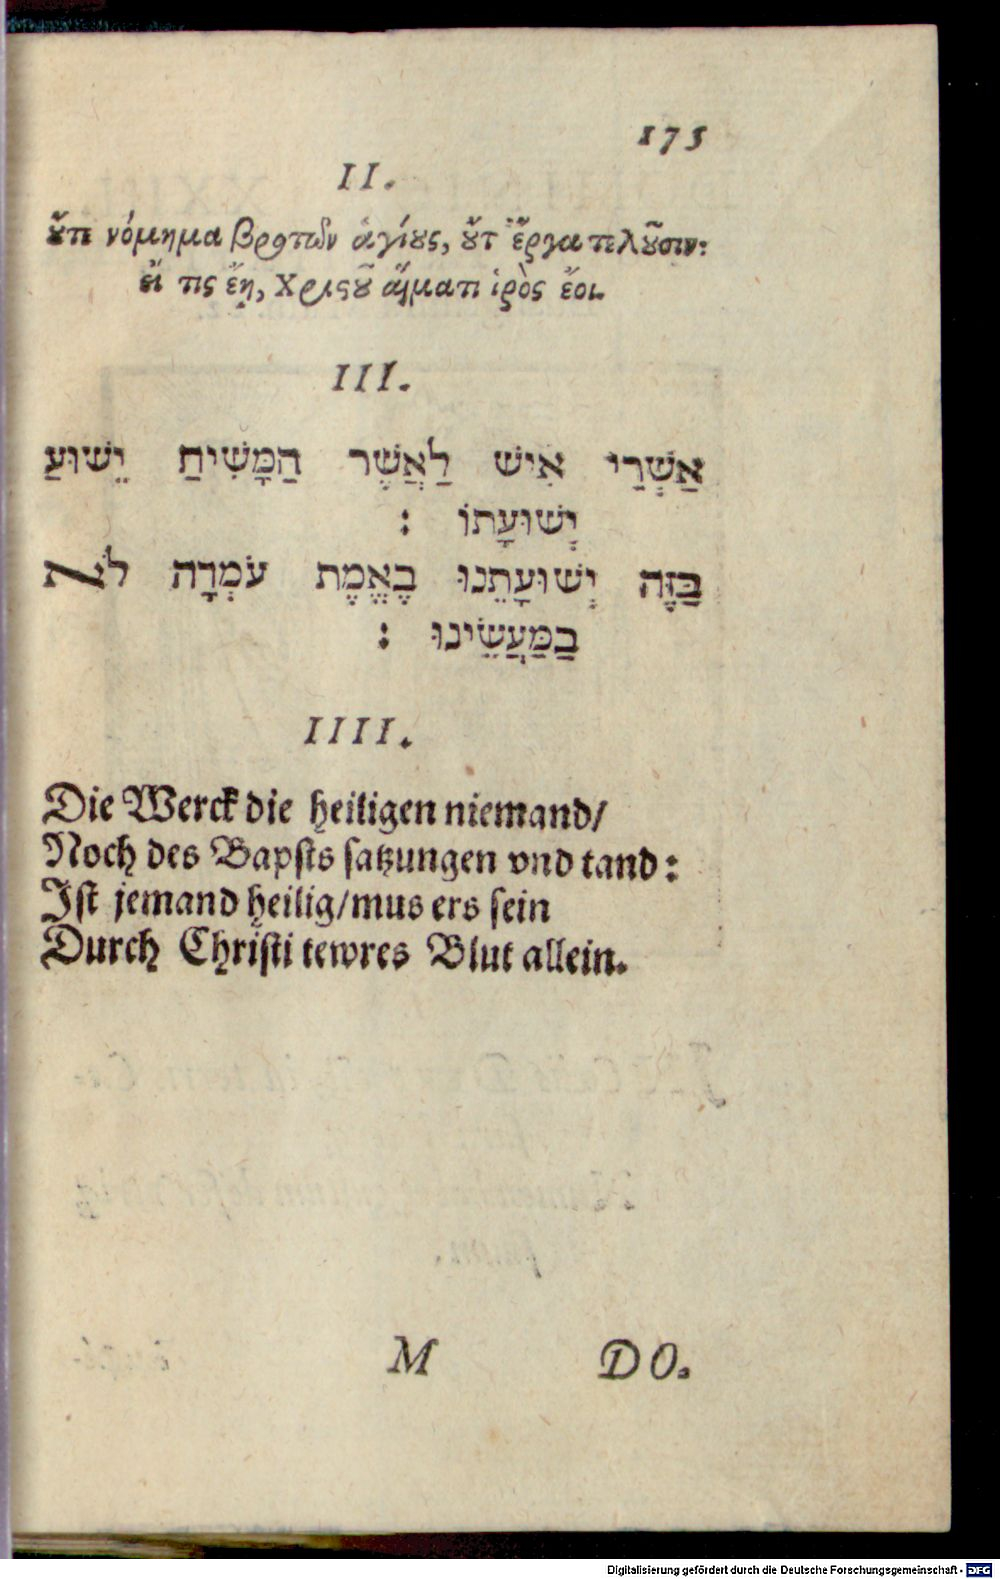 175
II.
οὔτι νόμημα βροτῶν ἁγίους, οὔτ' ἔργα τελοῦσιν:
εἴ τις ἔῃ, Χριστοῦ αἵματι ἱρὸς ἔοι.
III.
אַשְׁרֵי אִישׁ לַאֲשֶׁר הַמָּשִׁיחַ יֵשׁוּעַ
יְשׁוּעָתוֹ :
בַּזֶּה יְשׁוּעָתֵנוּ בֶאֱמֶת עֹמְדָה לֹא
בַמַּעֲשֵׂינוּ :
IIII.
Die Werck die heiligen niemand/
Noch des Bapsts satzungen vnd tand:
Ist jemand heilig/mus ers sein
Durch Christi tewres Blut allein.
M DO.
Digitalisierung gefördert durch die Deutsche Forschungsgemeinschaft - DFG